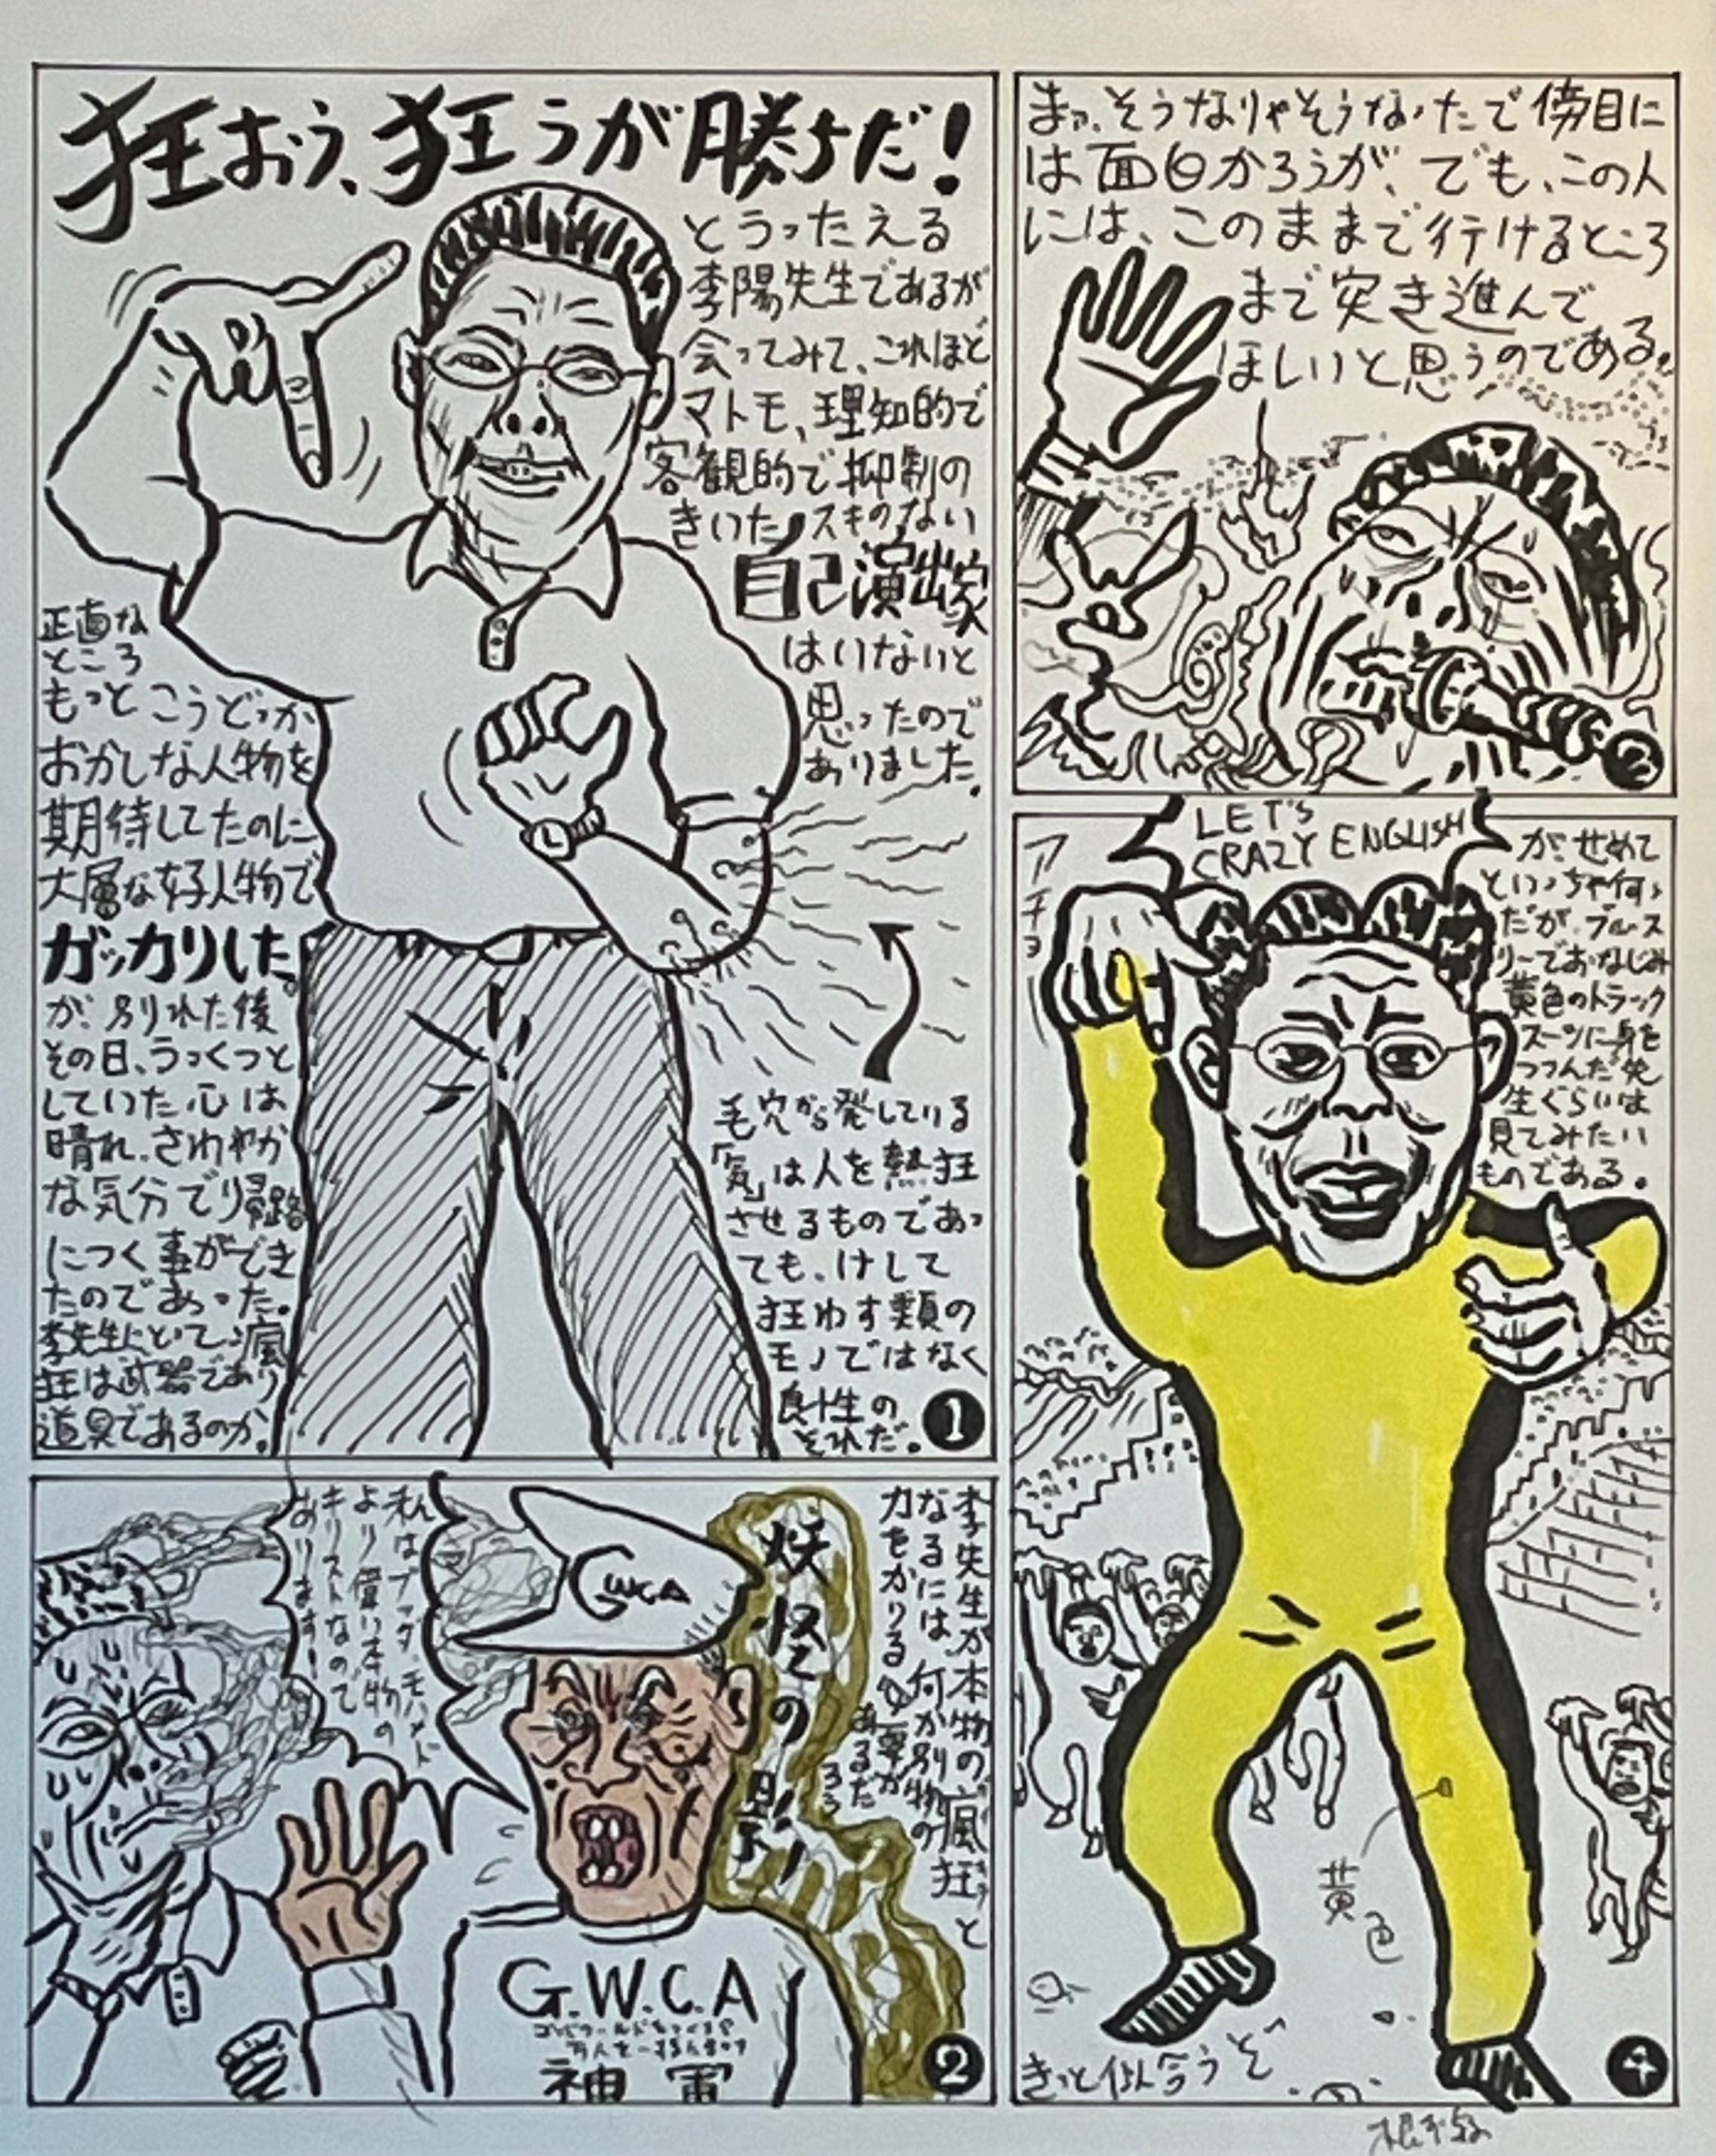 狂おう、狂うが勝ちだ！
とうったえる
李陽先生であるが
会ってみて、これほど
マトモ、理知的で
客観的で抑制の
きいた、スキのない
自己演出家
はいないと
思ったので
ありました。
正直な
ところ
もっとこうどっか
おかしな人物を
期待してたのに
大層な好人物で
ガッカリした。
が、別れた後
その日、うっくつと
していた心は
晴れ、さわやか
な気分で帰路
につく事ができ
たのであった。
李先生にとって、瘋
狂は武器であり
道具であるのか。
毛穴から発している
「気」は人を熱狂
させるものであっ
ても、けして
狂わす類の
モノではなく
良性の
それだ。
1
李先生が本物の瘋狂と
なるには、何か別物の
力をかりる必要が
あるだ
ろう
妖怪の
私はブッダ、モハメド
より偉い本物の
キリストなので
あります！
GWCA
G.W.C.A
神軍
2
まァ、そうなりゃそうなったで傍目に
は面白かろうが、でも、この人
には、このままで行けるところ
まで突き進んで
ほしいと思うのである。
LET'S
CRAZY ENGLISH
アチョ
が、せめて
といっちゃ何
だが、ブルース
リーでおなじみ
黄色のトラック
スーツに身を
つつんだ先
生ぐらいは
見てみたい
ものである。
黄色
きっと似合うぞ
4
根本敬